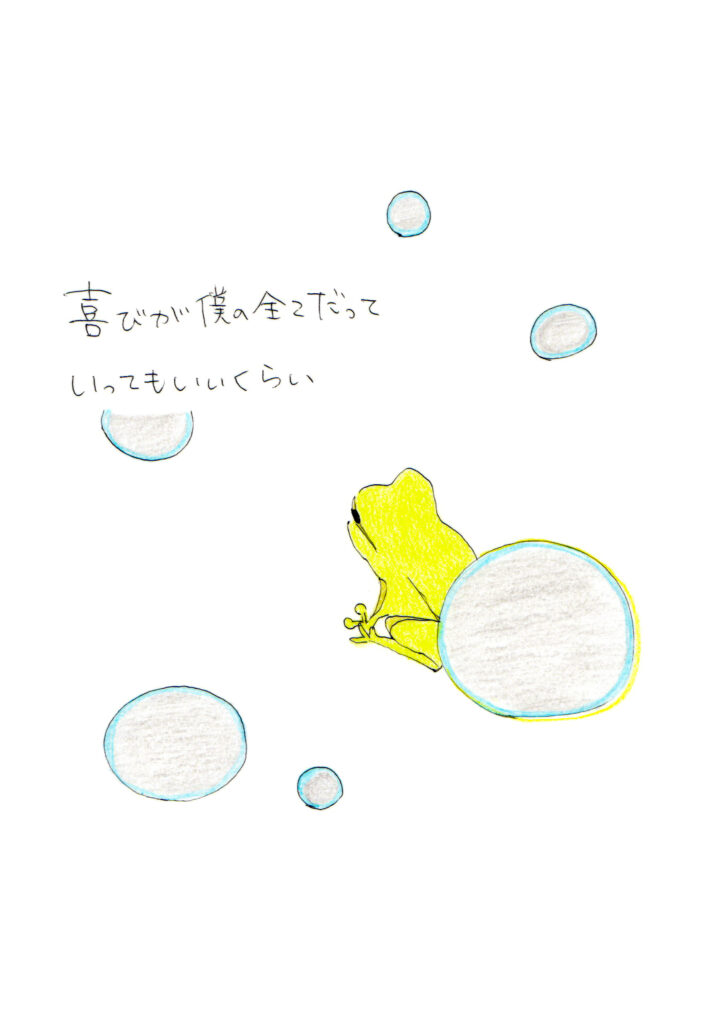 喜びが僕の全てだって
いってもいいくらい